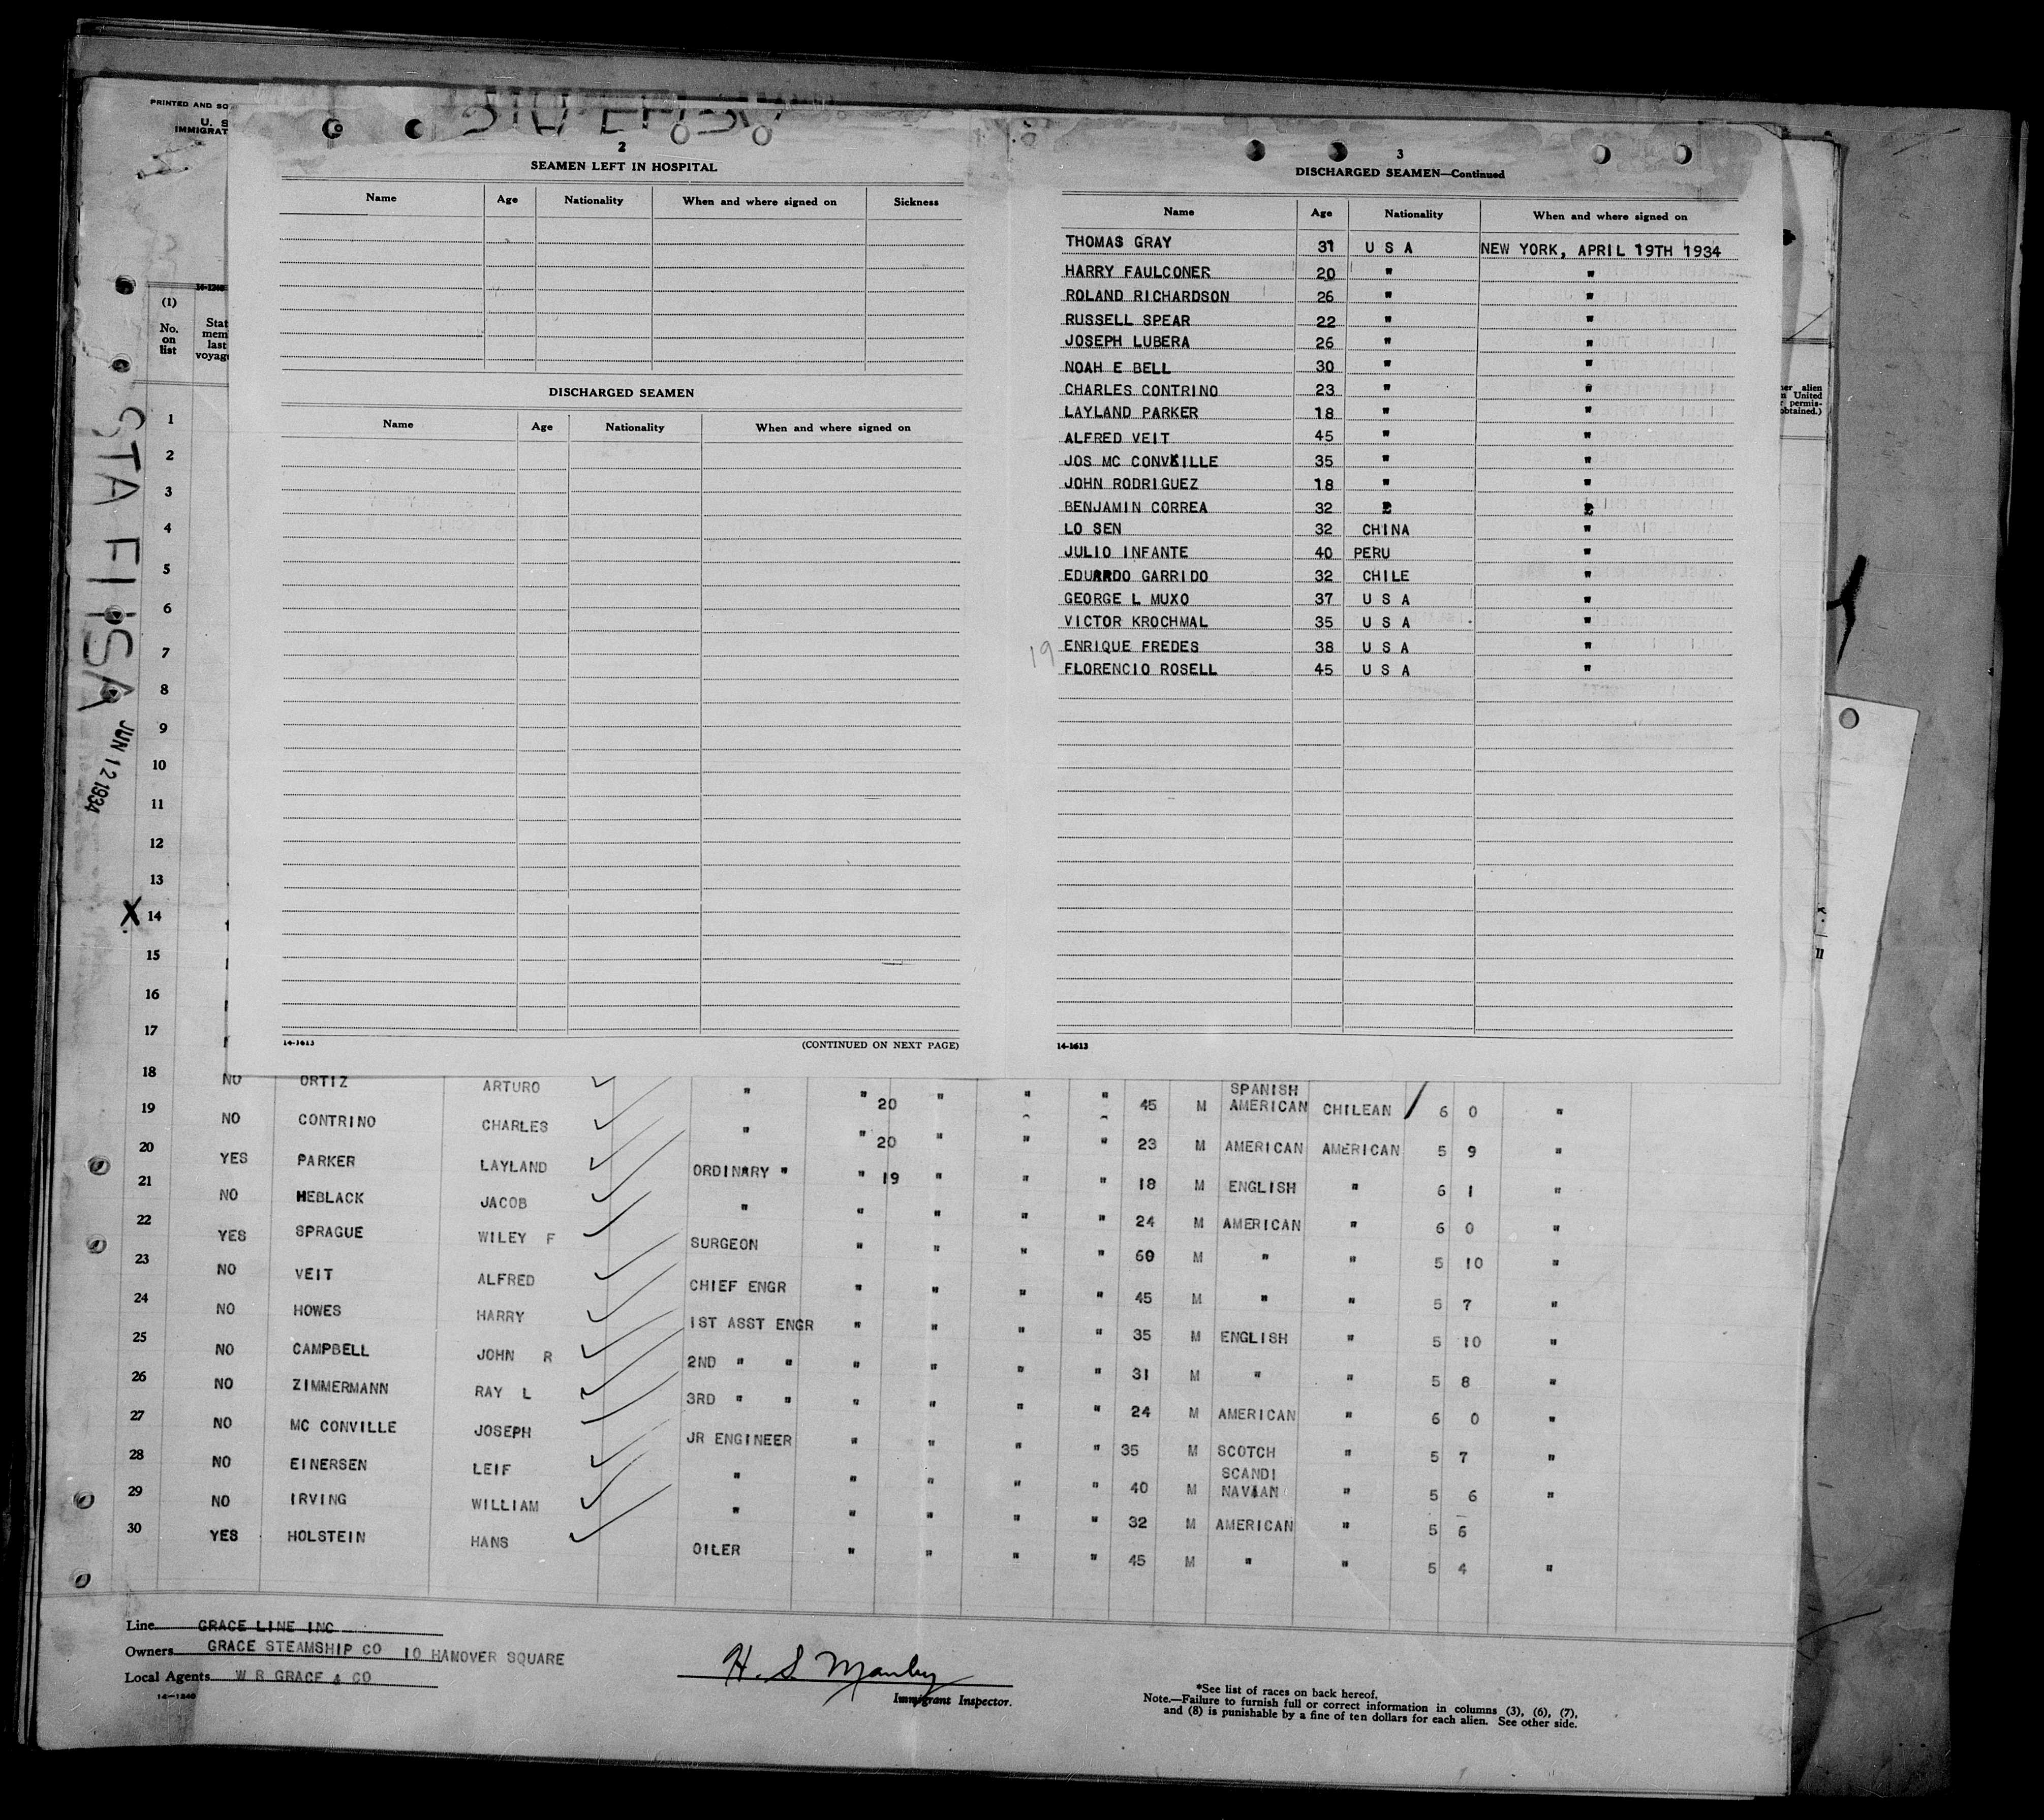 PRINTED AND SO
U. S
IMMIGRAT
2
SEAMEN LEFT IN HOSPITAL
Name Age Nationality When and where signed on Sickness
DISCHARGED SEAMEN
Name Age Nationality When and where signed on
14-1613 (CONTINUED ON NEXT PAGE)
3
DISCHARGED SEAMEN—Continued
Name Age Nationality When and where signed on
THOMAS GRAY 31 U S A NEW YORK, APRIL 19TH 1934
HARRY FAULCONER 20 " "
ROLAND RICHARDSON 26 " "
RUSSELL SPEAR 22 " "
JOSEPH LUBERA 26 " "
NOAH E BELL 30 " "
CHARLES CONTRINO 23 " "
LAYLAND PARKER 18 " "
ALFRED VEIT 45 " "
JOS MC CONVILLE 35 " "
JOHN RODRIGUEZ 18 " "
BENJAMIN CORREA 32 " "
LO SEN 32 CHINA "
JULIO INFANTE 40 PERU "
EDUARDO GARRIDO 32 CHILE "
GEORGE L MUXO 37 U S A "
VICTOR KROCHMAL 35 U S A "
19 ENRIQUE FREDES 38 U S A "
FLORENCIO ROSELL 45 U S A "
14-1613
14-1240
(1)
No.
on
list
Stat
mem
last
voyag
STA ElISA
JUN 12 1934
1
2
3
4
5
6
7
8
9
10
11
12
13
X 14
15
16
17
her alien
n United
r permis-
obtained.)
18 NO ORTIZ ARTURO " " 20 " " " 45 M SPANISH AMERICAN CHILEAN / 6 0 "
19 NO CONTRINO CHARLES " " 20 " " " 23 M AMERICAN AMERICAN 5 9 "
20 YES PARKER LAYLAND ORDINARY " " 19 " " " 18 M ENGLISH " 6 1 "
21 NO HEBLACK JACOB " " " " " 24 M AMERICAN " 6 0 "
22 YES SPRAGUE WILEY F SURGEON " " " " 60 M " " 5 10 "
23 NO VEIT ALFRED CHIEF ENGR " " " " 45 M " " 5 7 "
24 NO HOWES HARRY 1ST ASST ENGR " " " " 35 M ENGLISH " 5 10 "
25 NO CAMPBELL JOHN R 2ND " " " " " " 31 M " " 5 8 "
26 NO ZIMMERMANN RAY L 3RD " " " " " " 24 M AMERICAN " 6 0 "
27 NO MC CONVILLE JOSEPH JR ENGINEER " " " " 35 M SCOTCH " 5 7 "
28 NO EINERSEN LEIF " " " " " 40 M SCANDI NAVIAN " 5 6 "
29 NO IRVING WILLIAM " " " " " 32 M AMERICAN " 5 6
30 YES HOLSTEIN HANS OILER " " " " 45 M " " 5 4 "
Line GRACE LINE INC
Owners GRACE STEAMSHIP CO 10 HANOVER SQUARE
Local Agents W R GRACE & CO
14-1240
H. S. Manley
Immigrant Inspector.
*See list of races on back hereof.
Note.—Failure to furnish full or correct information in columns (3), (6), (7),
and (8) is punishable by a fine of ten dollars for each alien. See other side.